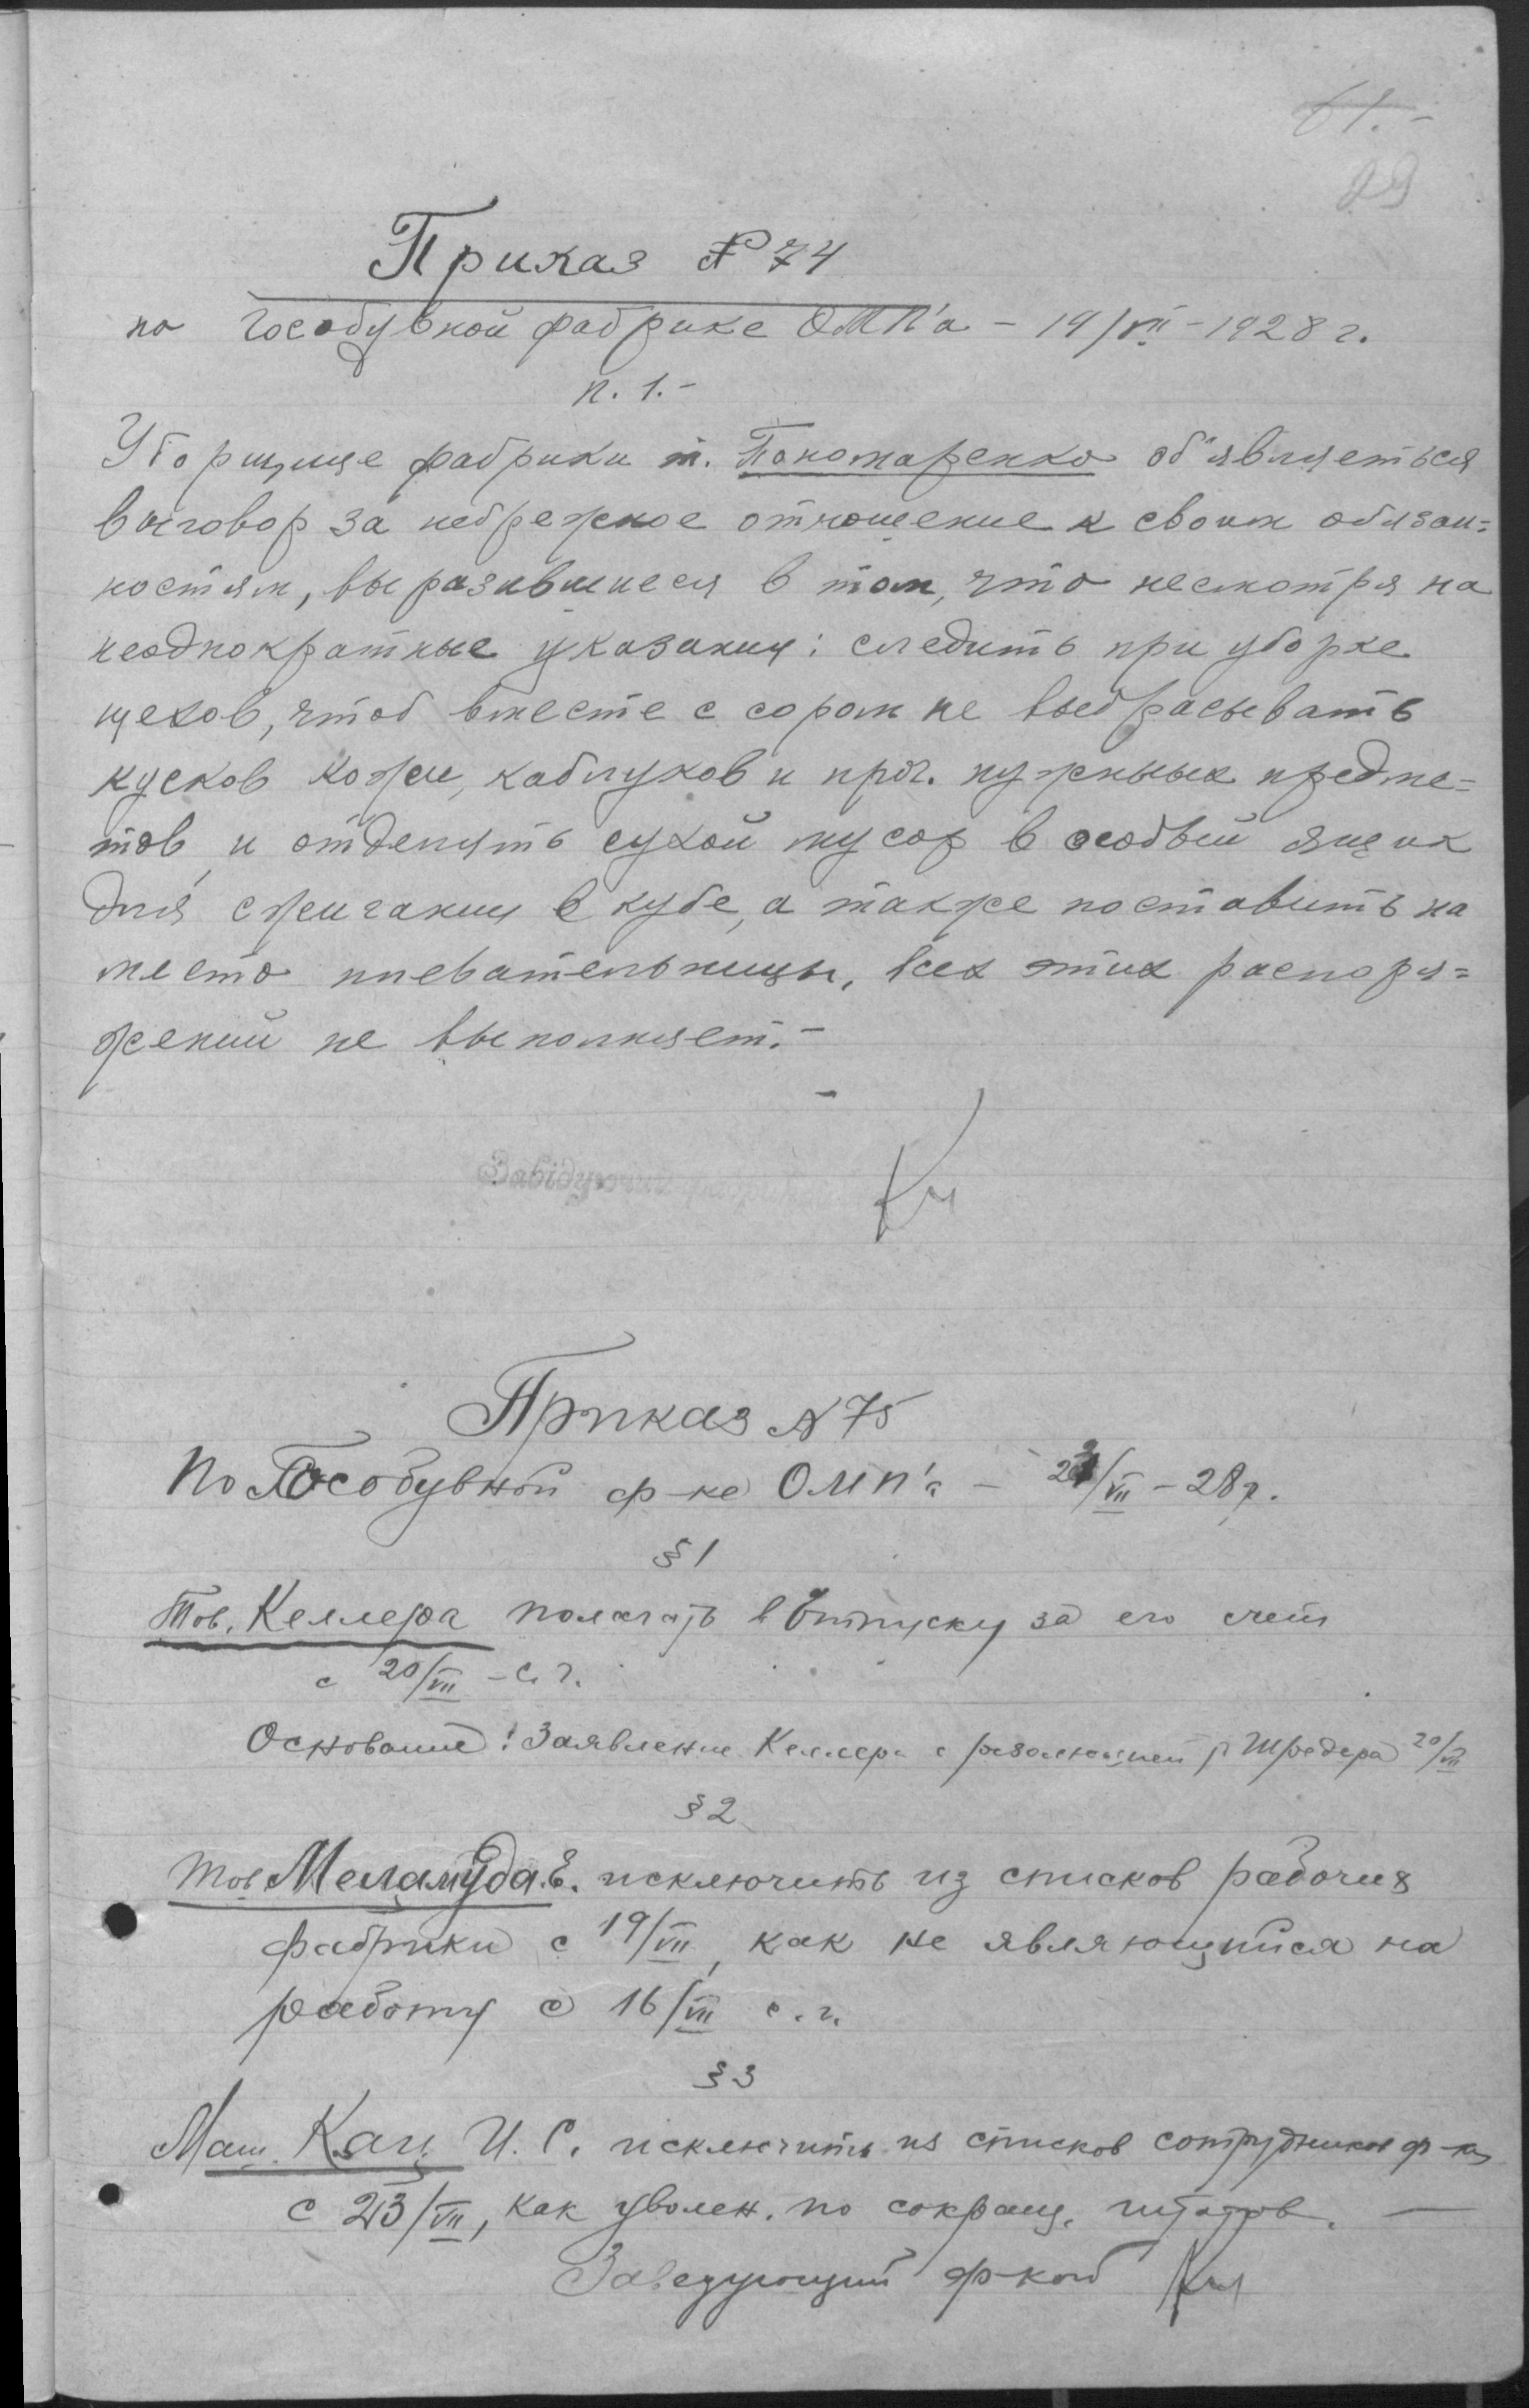 61.-
29
Приказ № 74
по Гособувной фабрике ОМП'а - 19/VII - 1928 г.
п. 1.-
Уборщице фабрики т. Пономаренко об'являеться
выговор за небрежное отношение к своим обязан=
ностям, выразившиеся в том, что несмотря на
неоднократные указания: следить при уборке
цехов, чтоб вместе с сором не выбрасывать
кусков кожи, каблуков и проч. нужных предме=
тов, и отделять сухой мусор в особый ящик
для сжигания в кубе, а также поставить на
место плевательницы, всех этих распоря=
жений не выполняет.-
Завідуючий фабрикой
Приказ № 75
По Гособувной ф-ке ОМП'а - /VII - 28 г.
§ 1
Тов. Келлера полагать в отпуску за его счет
с 20/VII - с. г.
Основание: Заявление Келлера с резолюцией Шредера 20/VII
§ 2
Тов Меламуда Е. исключить из списков рабочих
фабрики с 19/VII, как не являющийся на
работу с 16/VII с. г.
§ 3
Маш. Кац И. С. исключить из списков сотрудников ф-ки
с 23/VII, как уволен. по сокращ. штатов. —
Заведующий ф-кой